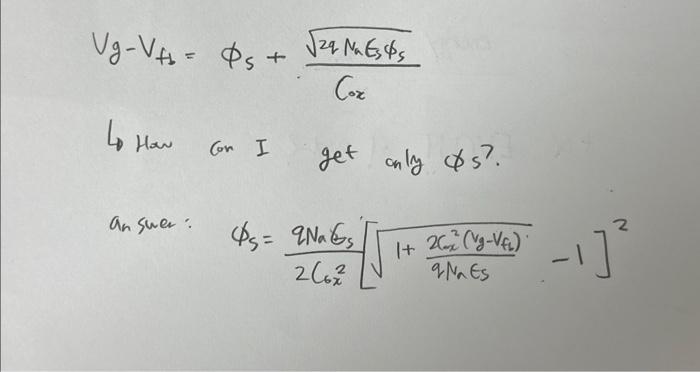 Vg-Vfb = ϕs + √2q Na Es ϕs / Cox
↳ How can I get only ϕs?.
answer: ϕs = qNa Es / 2Cox² [√1+ 2Cox²(Vg-Vfb) / qNa Es -1]²